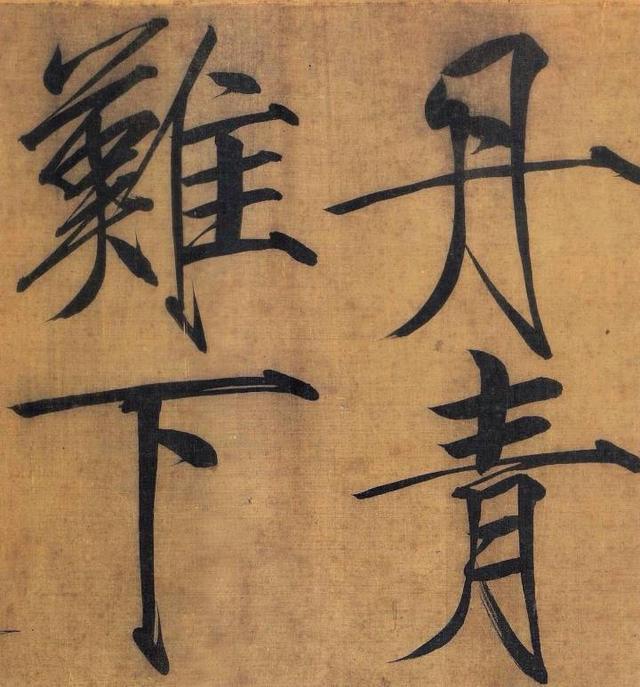 丹青
難下